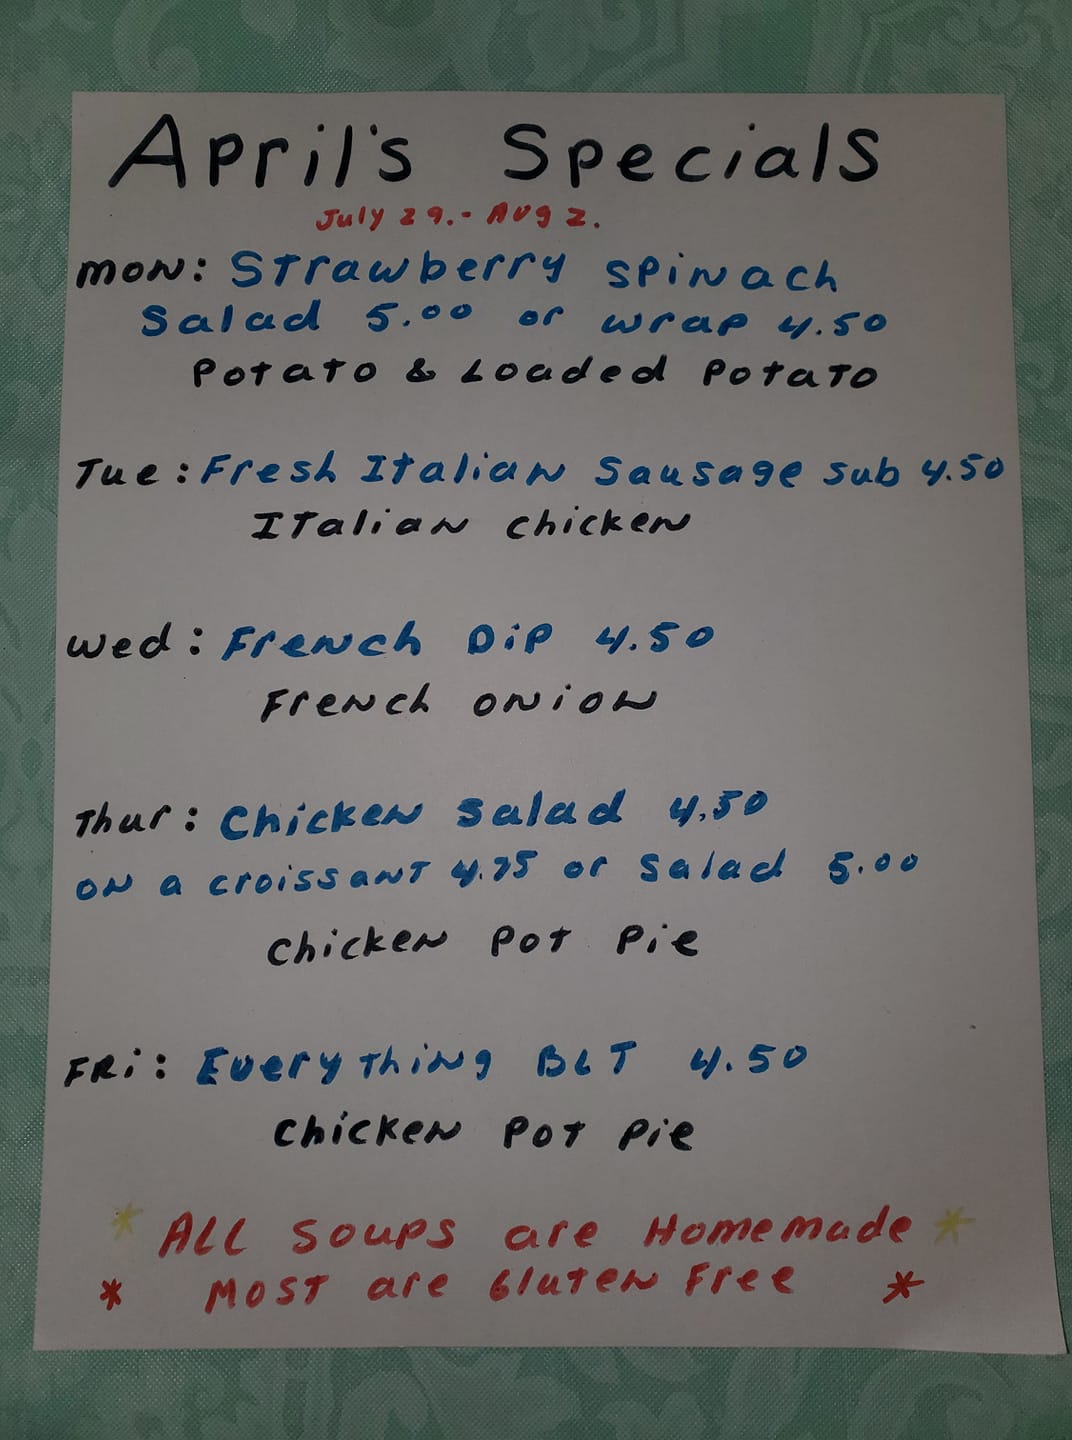 April's Specials
July 29.- Aug 2.
Mon: Strawberry Spinach
Salad 5.00 or wrap 4.50
Potato & Loaded Potato
Tue: Fresh Italian Sausage Sub 4.50
Italian chicken
Wed: French Dip 4.50
French onion
Thur: Chicken Salad 4.50
on a croissant 4.75 or Salad 5.00
Chicken Pot Pie
FRi: Everything BLT 4.50
Chicken Pot Pie
* ALL Soups are Homemade *
* Most are Gluten Free *